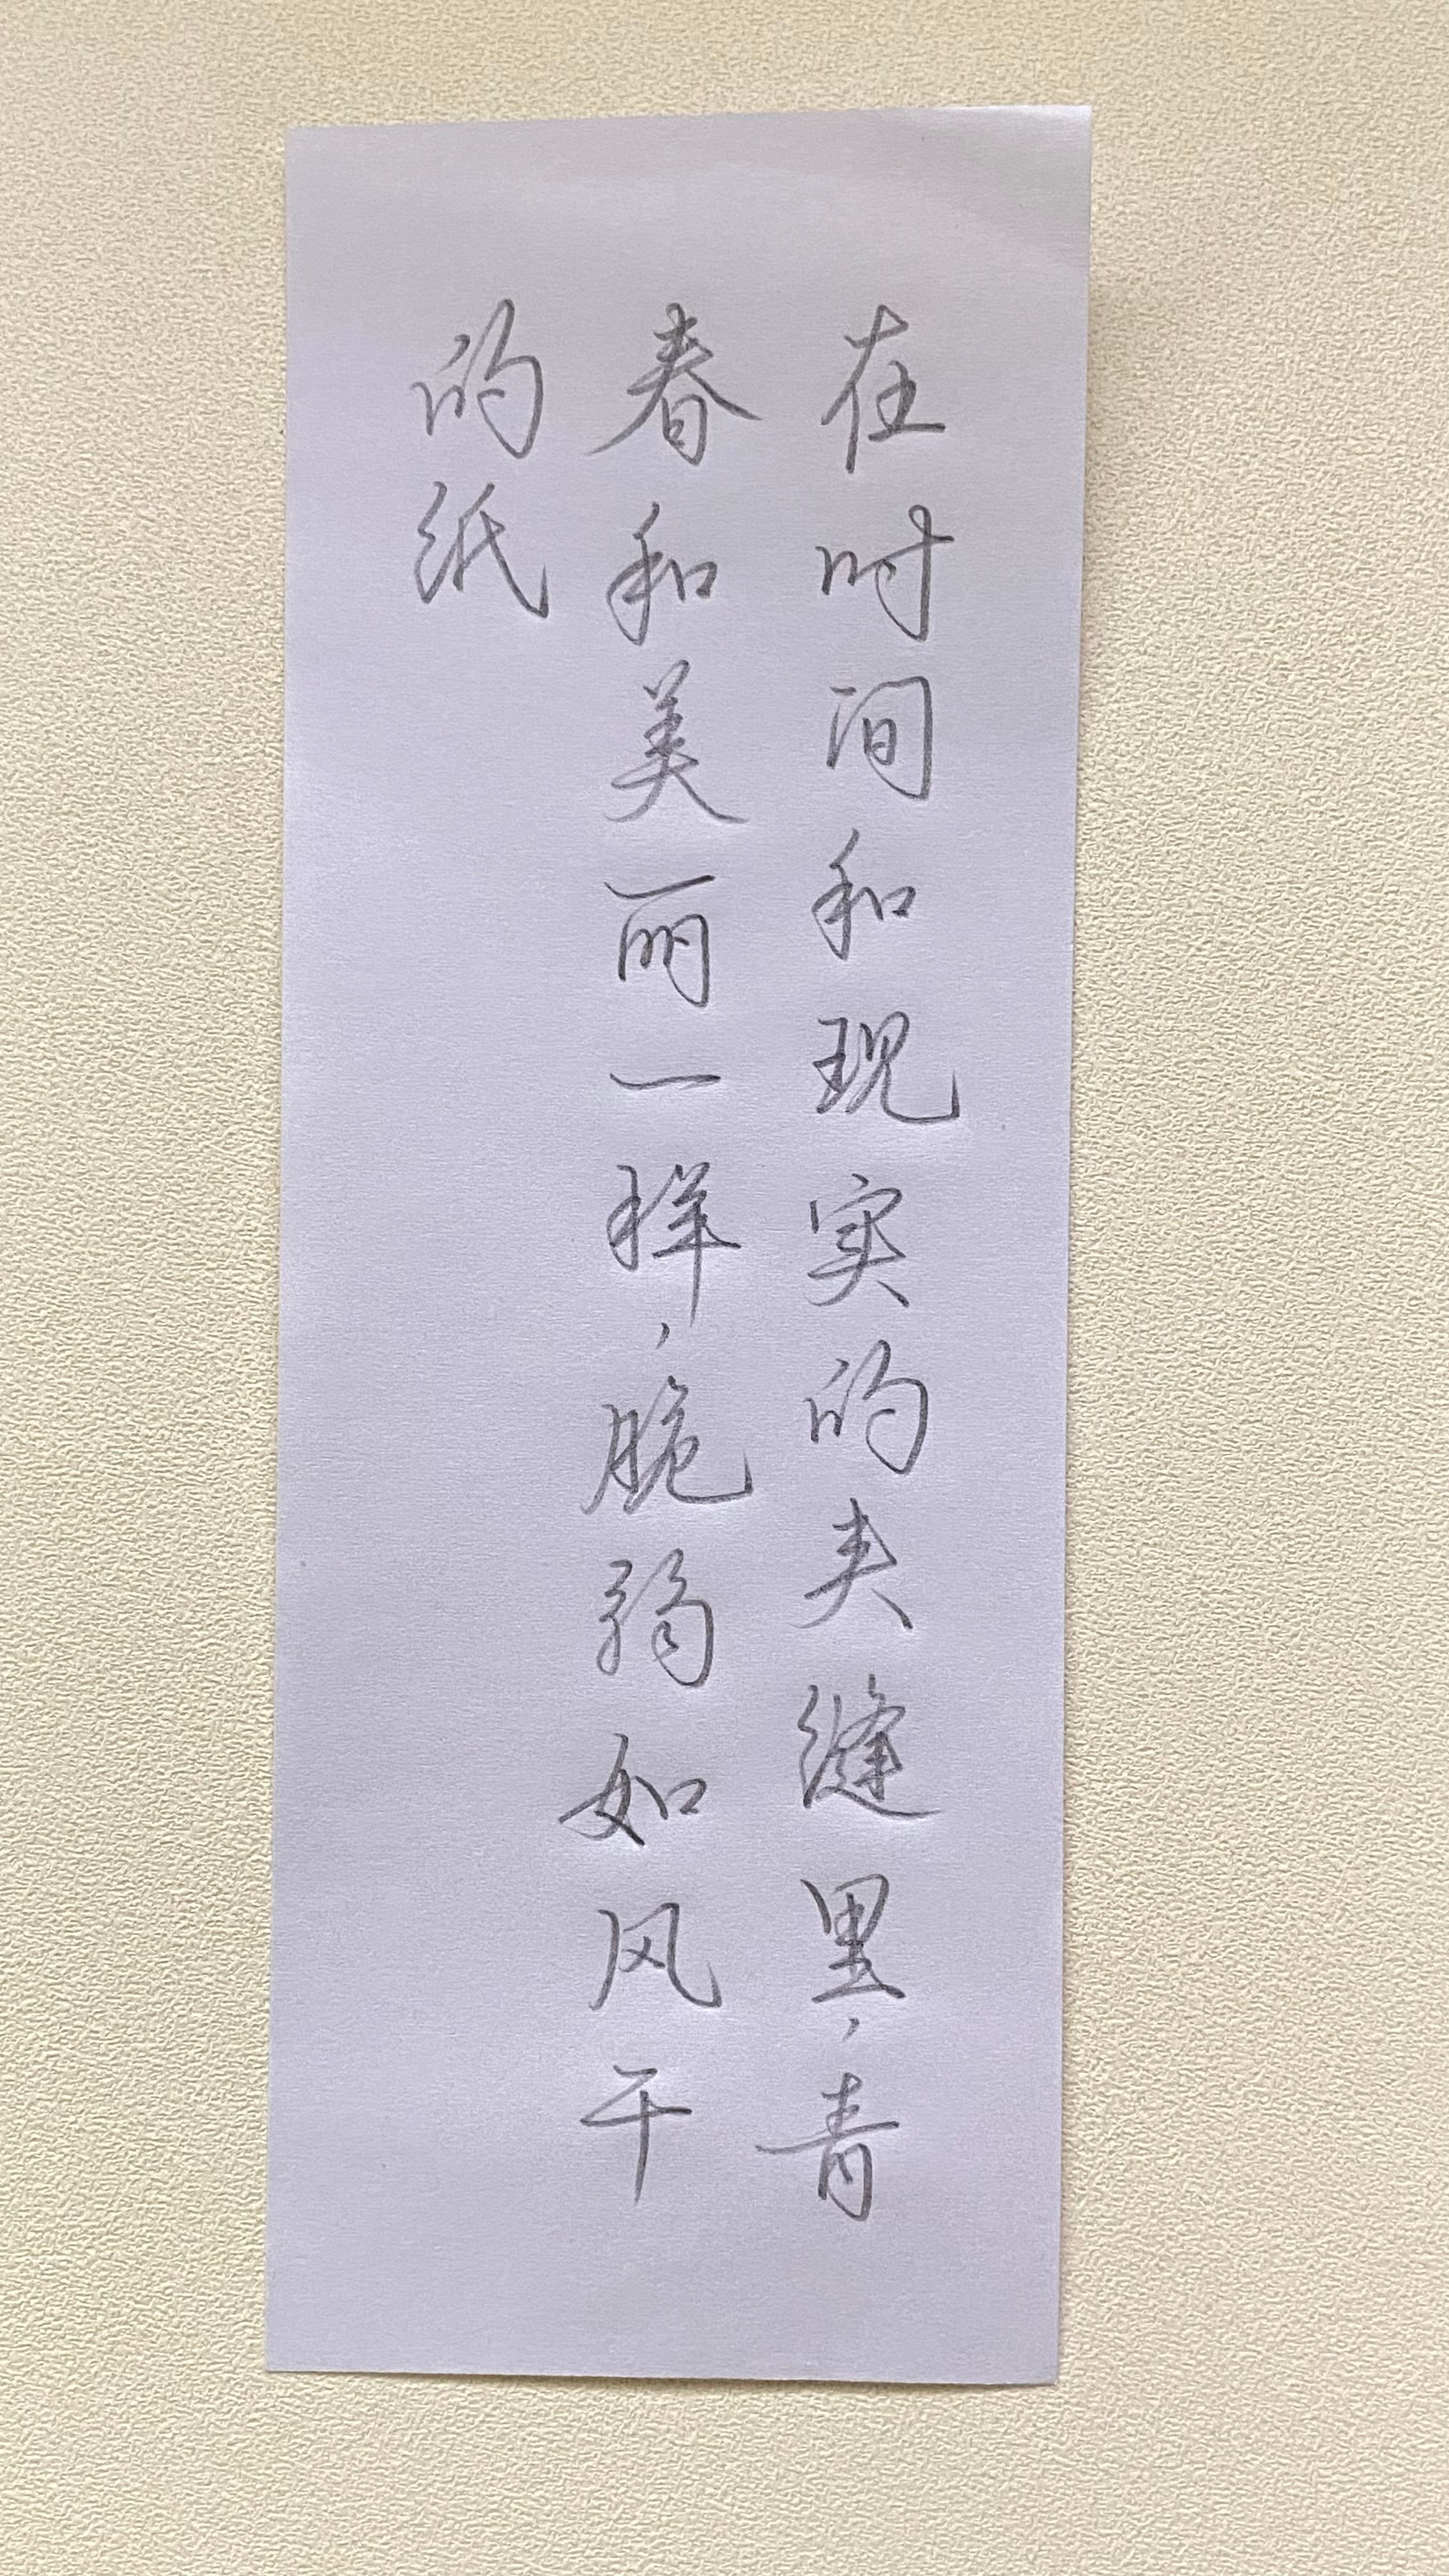 在时间和现实的夹缝里，青
春和美丽一样，脆弱如风干
的纸